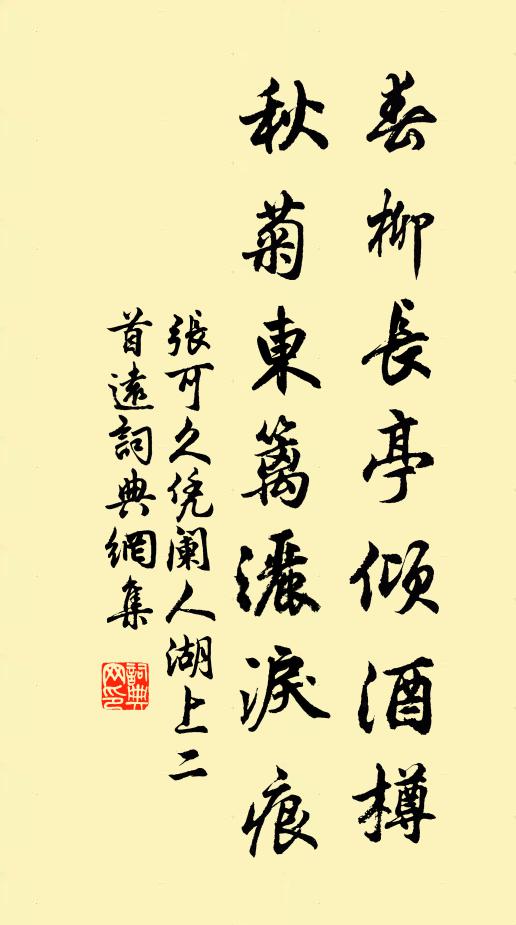 春柳長亭傾酒樽
秋菊東篱灑淚痕
張可久凭阑人湖上二
首遠詞典網集
詞典
网印